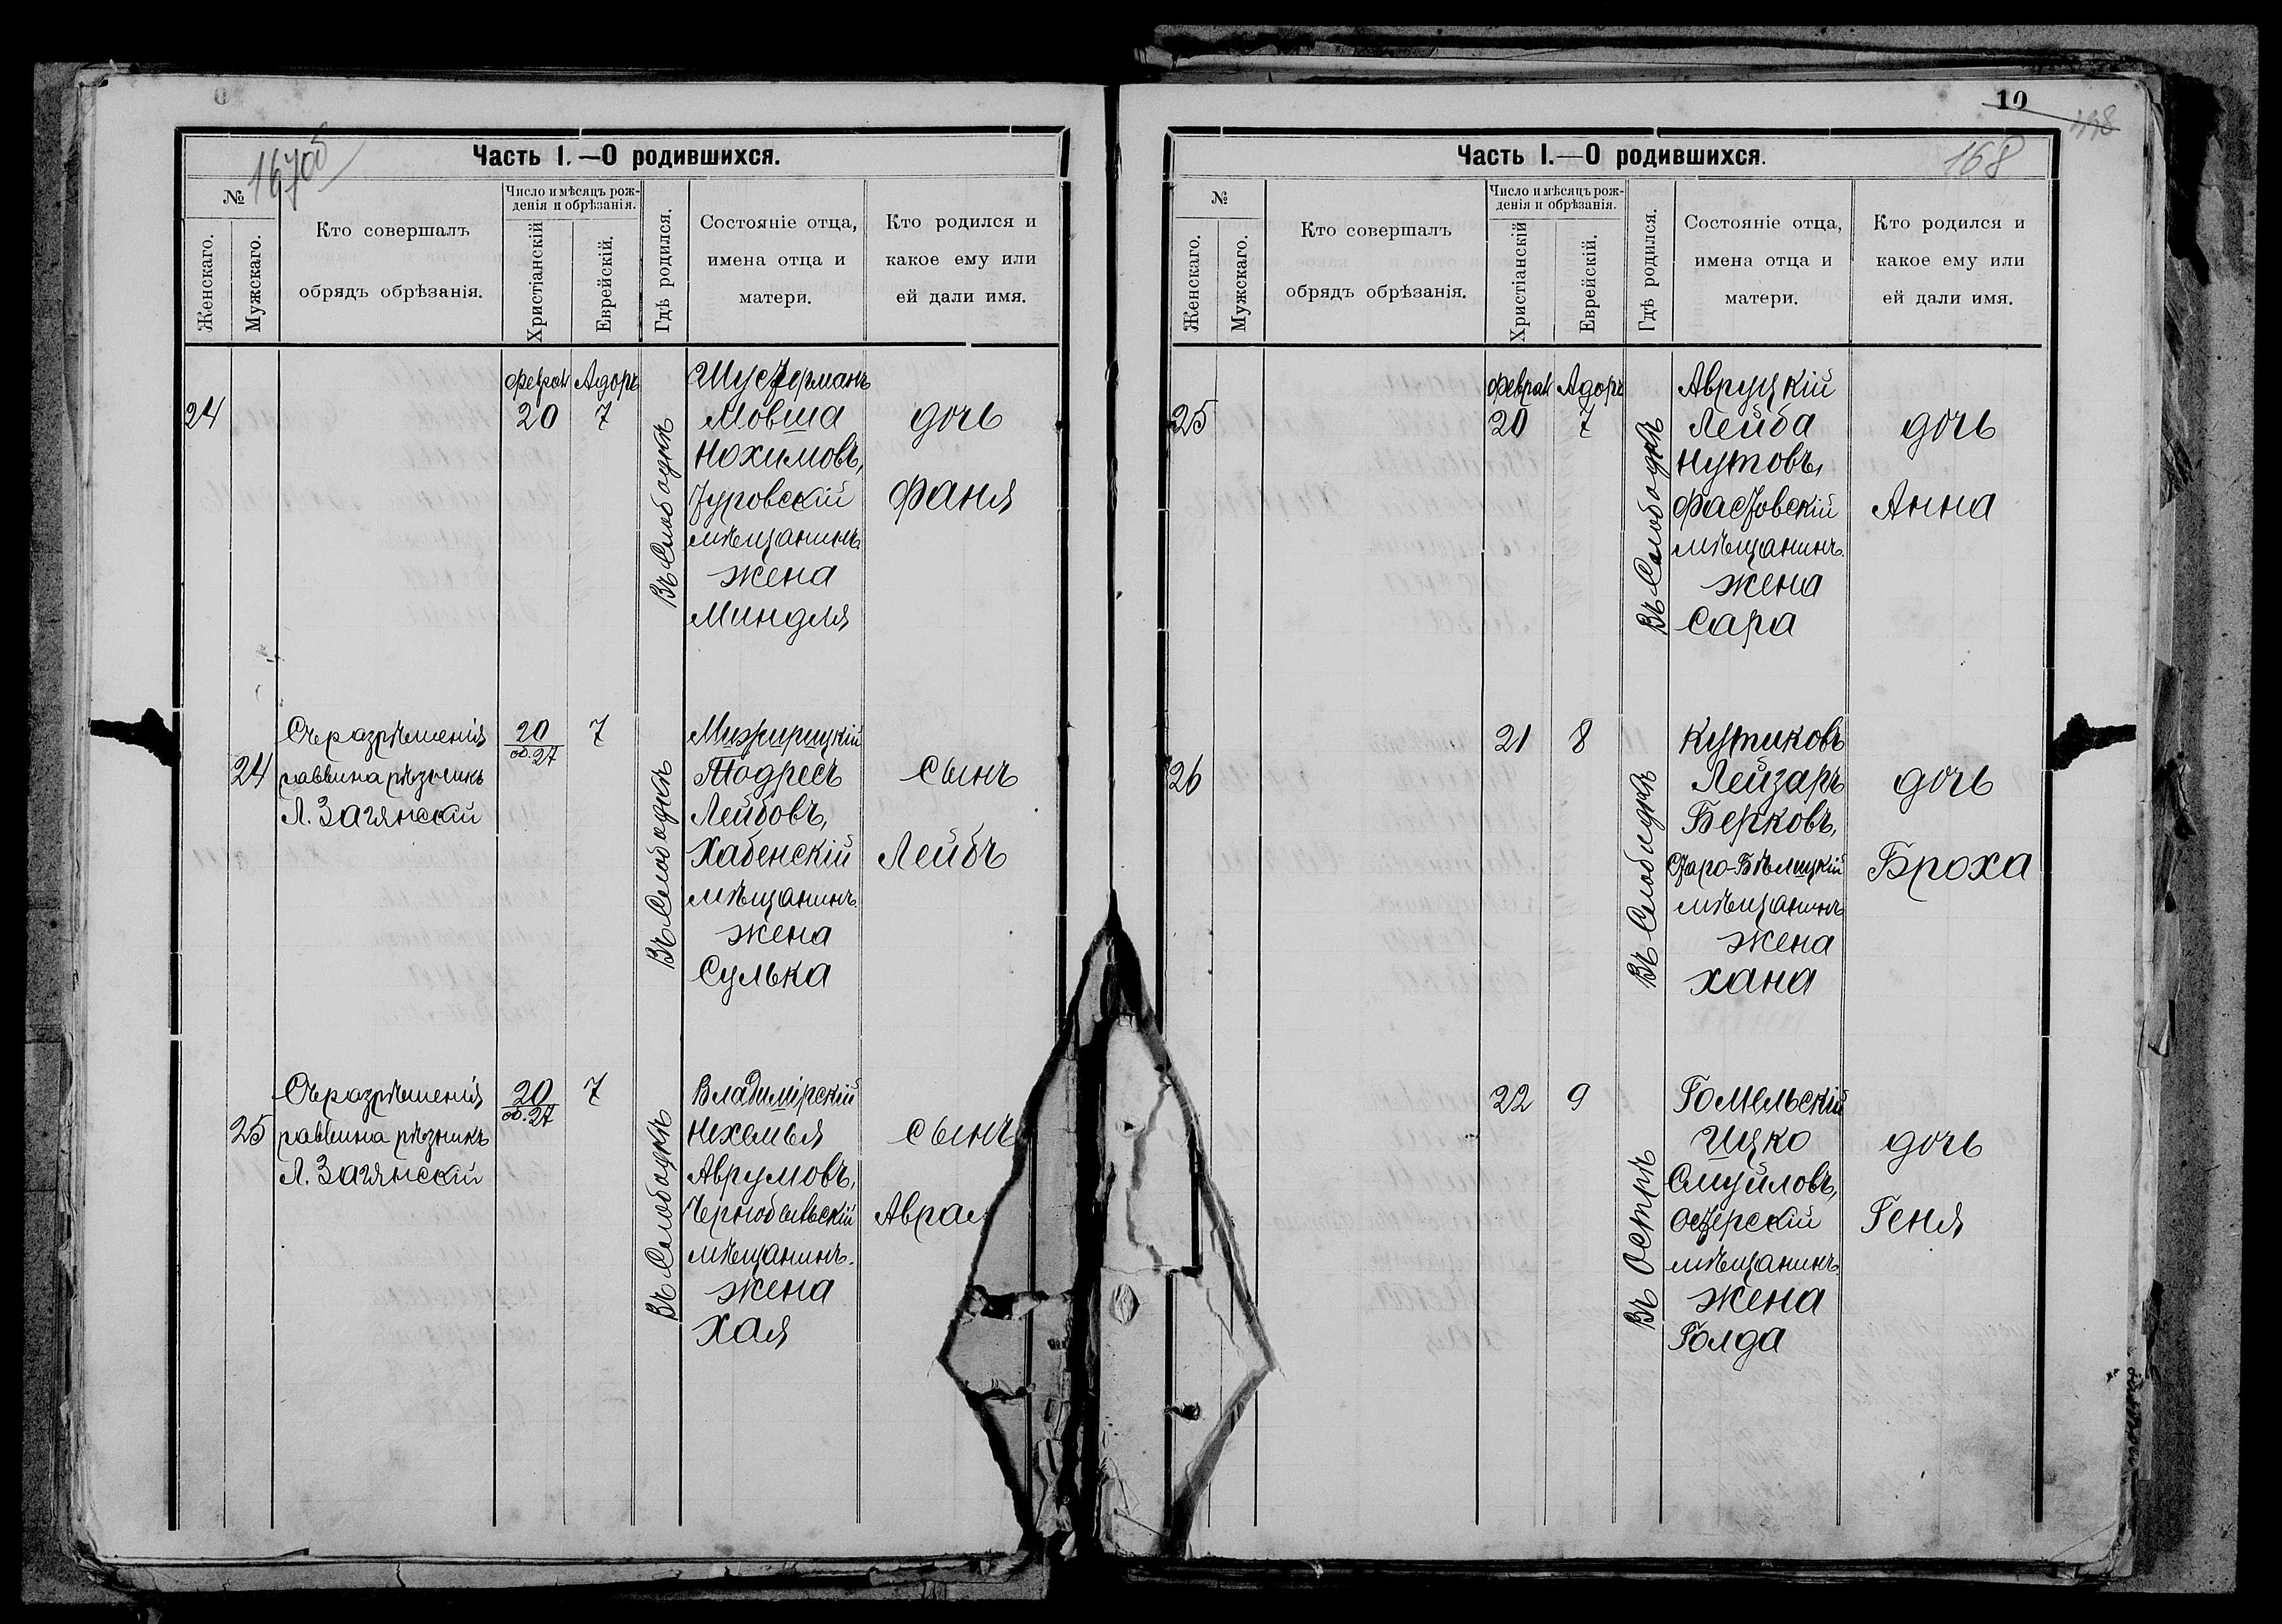 167об
Часть I.—О родившихся.
№
Женскаго.
Мужскаго.
Кто совершалъ
обрядъ обрѣзанія.
Число и мѣсяцъ рож-
денія и обрѣзанія.
Христіанскій
Еврейскій.
Гдѣ родился.
Состояніе отца,
имена отца и
матери.
Кто родился и
какое ему или
ей дали имя.
24
Феврал
20
Адоръ
7
Въ Слободкѣ
Шустерманъ
Мовша
Нохимовъ,
Туровскій
мѣщанинъ
жена
Миндля
дочь
Фаня
24
Съ разрѣшенія
раввина рѣзникъ
Л. Загянскій
20
об. 27
7
Въ Слободкѣ
Мижирицкій
Тодресъ
Лейбовъ,
Хабенскій
мѣщанинъ.
жена
Сулька
сынъ
Лейбъ
25
Съ разрѣшенія
раввина рѣзникъ
Л. Загянскій
20
об. 27
7
Въ Слободкѣ
Владимірскій
Нехемья
Аврумовъ,
Чернобыльскій
мѣщанинъ.
жена
Хая
сынъ
Аврам
10
168
Часть I.—О родившихся.
№
Женскаго.
Мужскаго.
Кто совершалъ
обрядъ обрѣзанія.
Число и мѣсяцъ рож-
денія и обрѣзанія.
Христіанскій
Еврейскій.
Гдѣ родился.
Состояніе отца,
имена отца и
матери.
Кто родился и
какое ему или
ей дали имя.
25
Феврал
20
Адоръ
7
Въ Слободкѣ
Авруцкій
Лейба
Нутовъ,
Фастовскій
мѣщанинъ.
жена
Сара
дочь
Анна
26
21
8
Въ Слободкѣ
Кутиковъ
Лейзаръ
Берковъ,
Старо-Бѣлицкій
мѣщанинъ
жена
Хана
дочь
Броха
22
9
Въ Острѣ
Гомельскій
Ицко
Смуйловъ,
Остерскій
мѣщанинъ.
жена
Голда
дочь
Геня